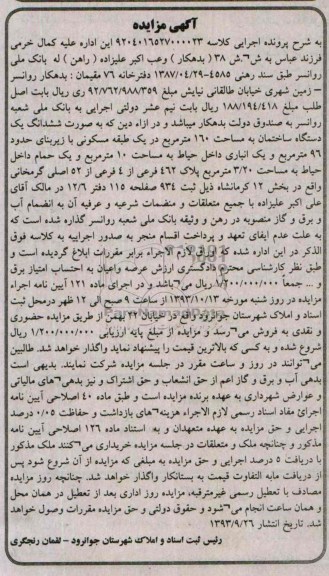 آگهی مزایده
به شرح پرونده اجرایی کلاسه ۹۲۰۴۰۱۶۵۲۷۰۰۰۰۲۳ این اداره علیه کمال خرمی
فرزند عباس به ش۶.ش ۳۸ (بدهکار) وعب اکبر علیزاده (راهن) له بانک ملی
روانسر طبق سند رهنی ۴۵۸۵-۱۳۸۷/۰۴/۲۹ دفترخانه ۷۶ مقیمان: بدهکار روانسر
– زمین شهری خیابان طالقانی نبایش مبلغ ۹۲/۷۶۲/۹۸۸/۳۵۹ ری ریال بابت اصل
طلب مبلغ ۱۸۸/۱۹۴/۴۱۸ ریال بابت نیم عشر دولتی اجرایی به بانک ملی شعبه
روانسر به صندوق دولت بدهکار میباشد و در ازاء دین که به صورت ششدانگ یک
دستگاه ساختمان به مساحت ۱۶۰ مترمربع در یک طبقه مسکونی با زیربنای حدود
۹۶ مترمربع و یک انباری داخل حیاط به مساحت ۱۰ مترمربع و یک حمام داخل
حیاط به مساحت ۳/۲۰ مترمربع پلاک ۴۶۲ فرعی از ۴ فرعی از ۵۲ اصلی گرمخانی
واقع در بخش ۱۲ کرمانشاه ذیل ثبت ۹۳۴ صفحه ۱۱۵ دفتر ۱۲/۶ در مالک آقای
علی اکبر علیزاده با جمیع متعلقات و منضمات شرعیه و عرفیه آن به انضمام آب
و برق و گاز منصوبه در رهن و وثیقه بانک ملی شعبه روانسر گذارده شده است که
به علت عدم ایفای تعهد و پرداخت اقسام منجر به صدور اجراییه به کلاسه فوق
الذکر در این اداره شده که لازم الاجراء برابر مقررات ابلاغ گردیده است و
طبق نظر کارشناسی محترم دادگستری ارزش عرصه واعیان به احتساب امتیاز برق
و ... جمعاً ۱/۲۰۰/۰۰۰/۰۰۰ ریال می باشد و در اجرای ماده ۱۲۱ آیین نامه اجراء
مزایده در روز شنبه مورخه ۱۳۹۳/۱۰/۱۳ از ساعت ۹ صبح الی ۱۲ ظهر درمحل ثبت
اسناد و املاک شهرستان جوانرود واقع در خیابان ۳۲ متری از طریق مزایده حضوری
و نقدی به فروش می رسد و مزایده از مبلغ پایه ارزیابی ۱/۲۰۰/۰۰۰/۰۰۰ ریال
شروع شده و به کسی که بالاترین قیمت را پیشنهاد نماید واگذار خواهد شد. طالبین
می توانند در روز و ساعت مقرر در جلسه مزایده شرکت نمایند. بدیهی است
بدهی آب و برق و گاز اعم از حق انشعاب و حق اشتراک و نیز بدهی های مالیاتی
و عوارض شهرداری به عهده برنده مزایده است و طبق ماده ۴۰ اصلاحی آیین نامه
اجرائ مفاد اسناد رسمی لازم الاجراء هزینه های بازداشت و حفاظت ۰/۰۵ درصد
اجرایی و حق مزایده به عهده متعهدان و به استناد ماده ۱۲۶ اصلاحی آیین نامه
مذکور و چنانچه ملک و متعلقات در جلسه مزایده خریداری می کنند ملک مذکور
با دریافت ۵ درصد اجرایی و حق مزایده به مبلغی که مزایده از آن شروع شود پس
از دریافت مابه التفاوت قیمت به بستانکار واگذار خواهد شد. چنانچه روز مزایده
مصادف با تعطیل رسمی غیرمترقبه، مزایده روز اداری بعد از تعطیل در همان محل
و همان ساعت انجام می شود و حقوق دولتی و حق مزایده مقررات وصول خواهد
شد. تاریخ انتشار ۱۳۹۳/۹/۲۶
رئیس ثبت اسناد و املاک شهرستان جوانرود - لقمان رنجگری